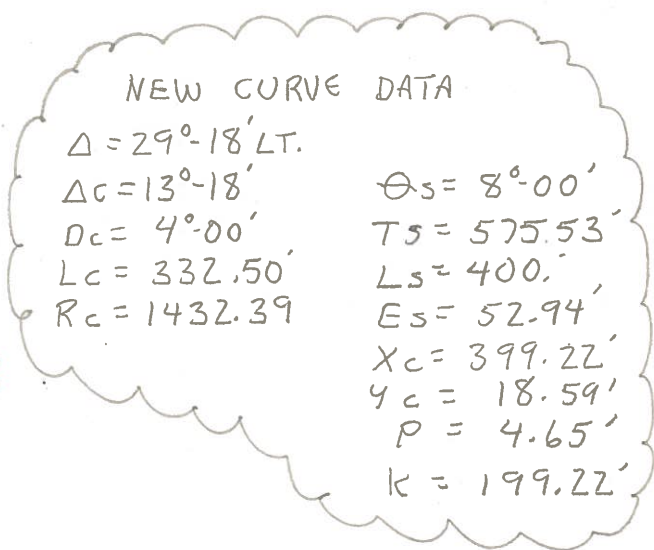 NEW CURVE DATA
Δ = 29°-18' LT.
Δc = 13°-18'
Dc = 4°-00'
Lc = 332.50'
Rc = 1432.39
θs = 8°-00'
Ts = 575.53'
Ls = 400.'
Es = 52.94'
Xc = 399.22'
Yc = 18.59'
P = 4.65'
K = 199.22'